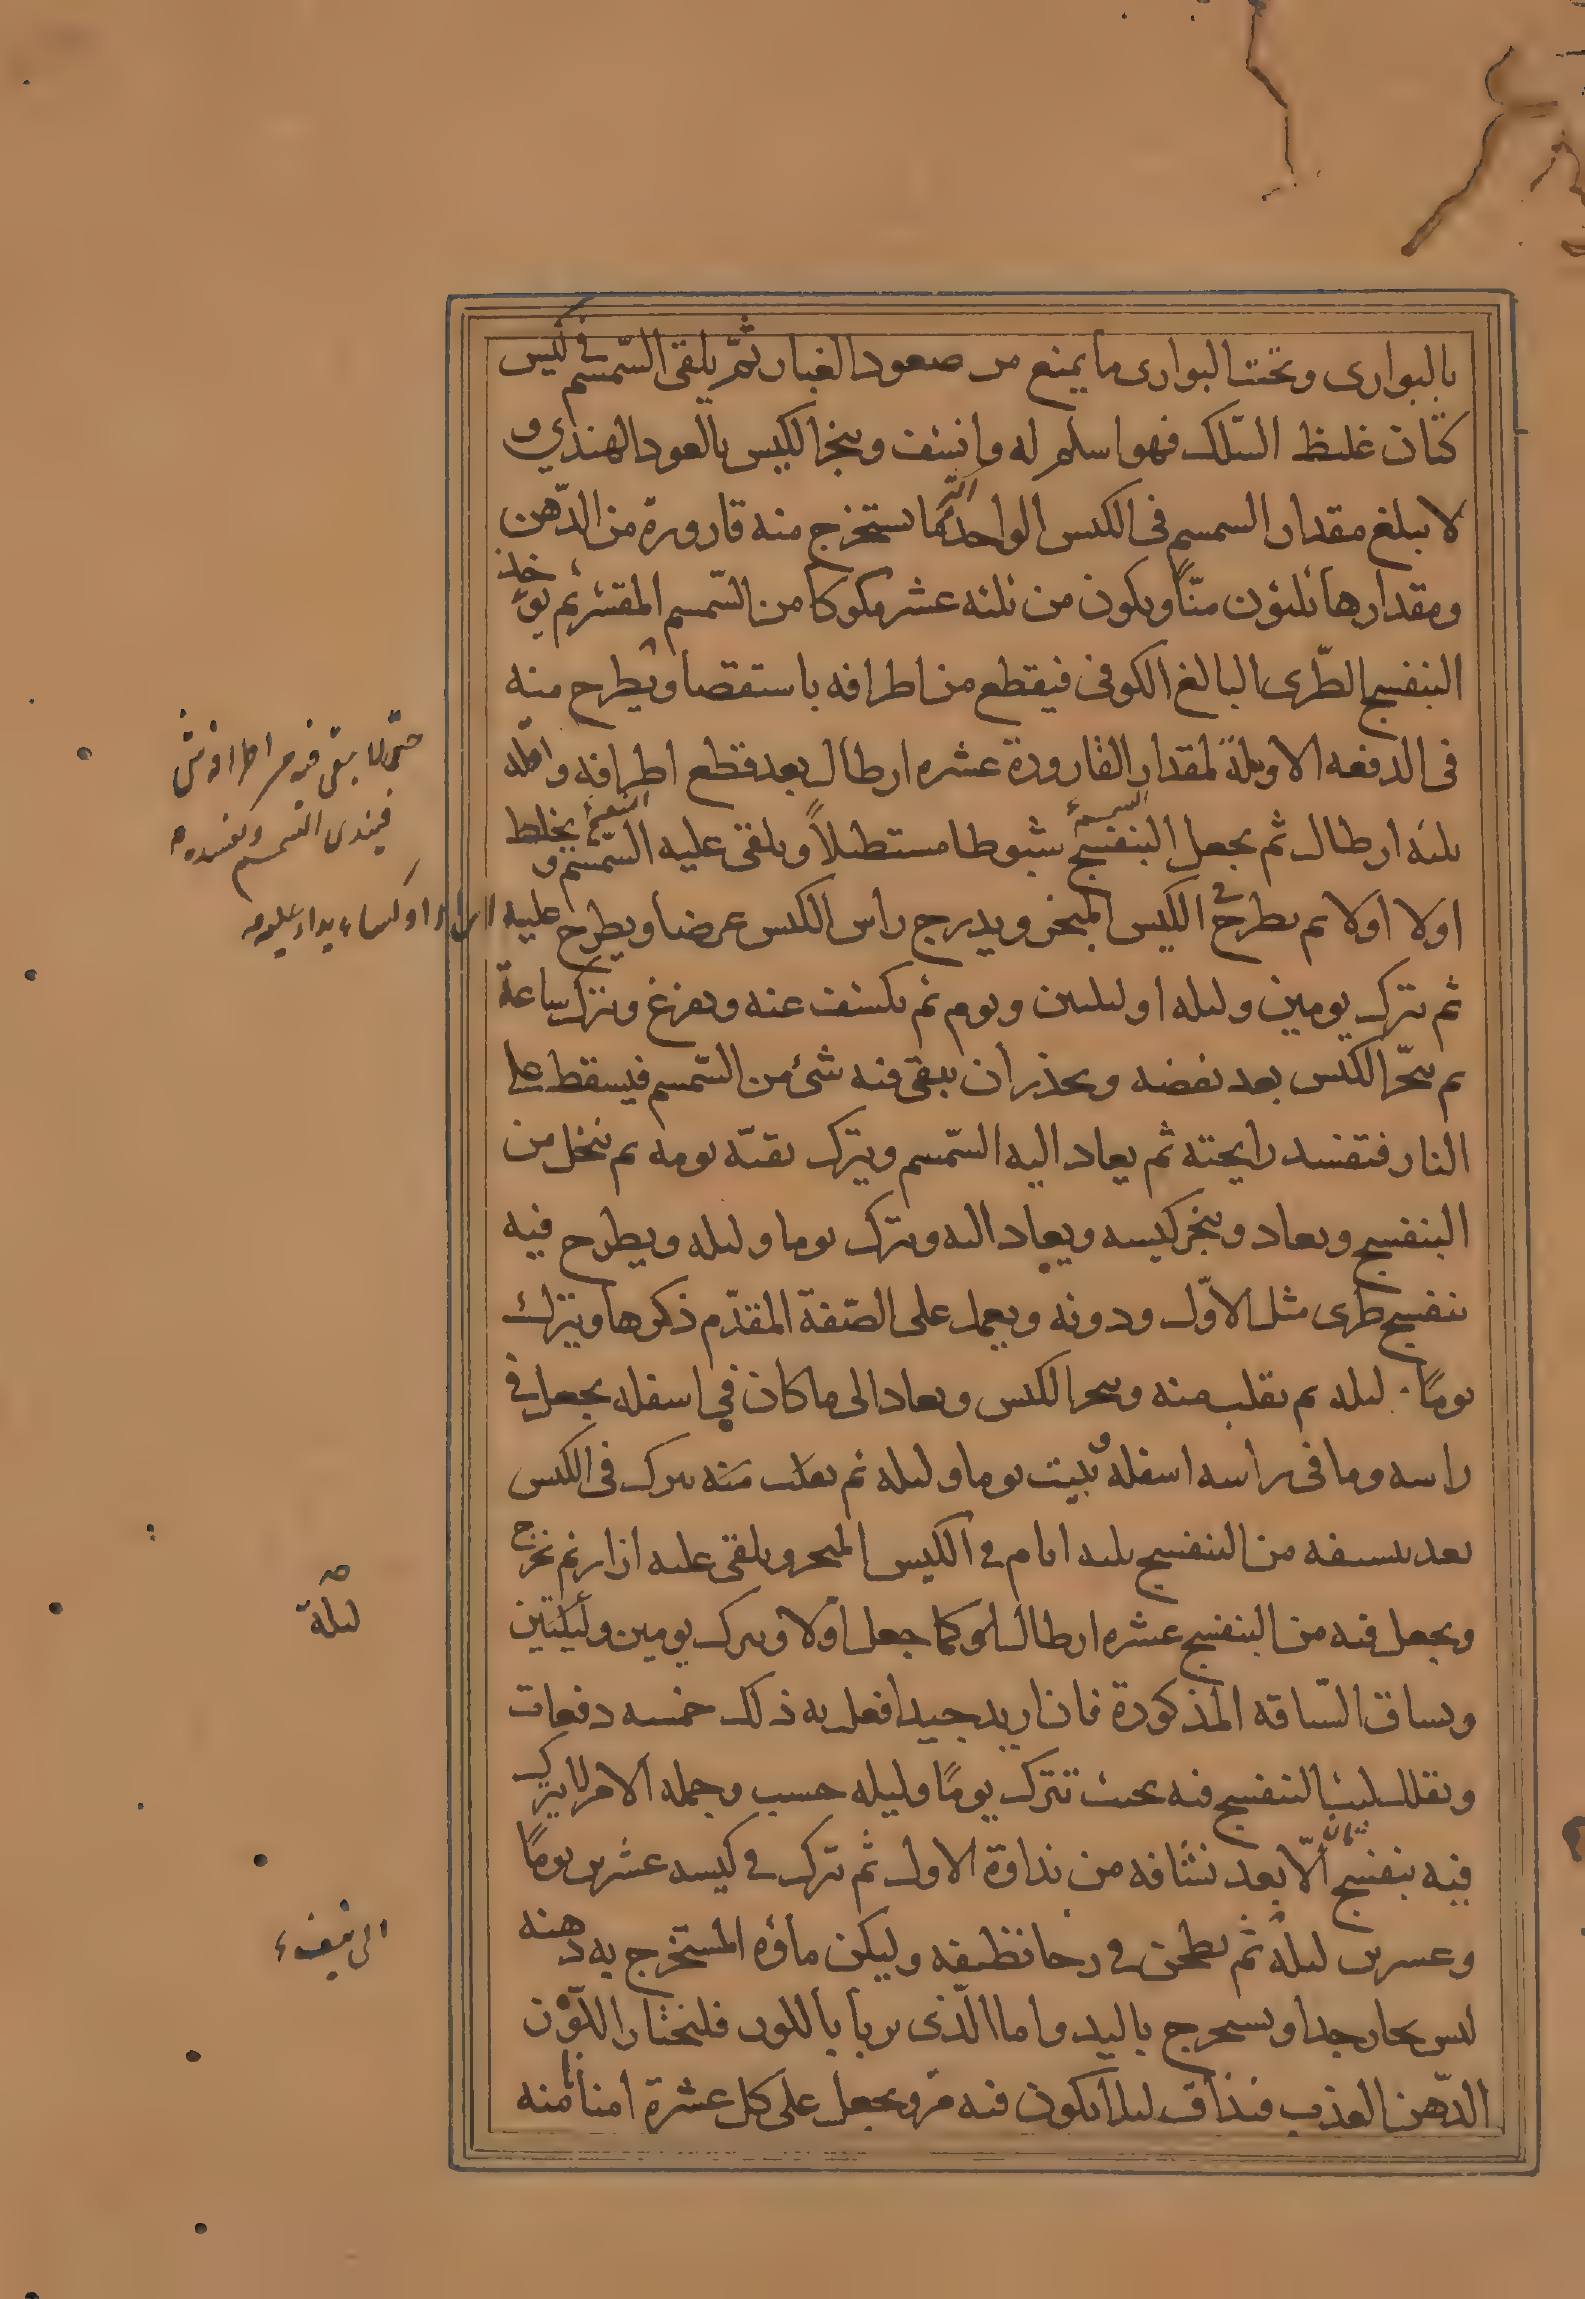 بالبوارى وتحت البوارى ما يمنع من صعود الغبار ثمّ يلقى السّمسم فى كيس
كتّان غليظ السّلك فهو اسلم له وانشف ويبخر الكيس بالعود الهندي و
لا يبلغ مقدار السمسم فى الكيس الواحد اكثر ما يستخرج منه قارورة من الدّهن
ومقدارها ثلثون منّاً ويكون من ثلثه عشر مكوكا من السّمسم المقشر ثم يؤخذ
البنفسج الطّرى البالغ الكوفى فيقطع من اطرافه باستقصا ويطرح منه
فى الدفعه الاوّلة لمقدار القارورة عشره ارطال بعد قطع اطرافه واقله
ثلثه ارطال ثم يجعل البنفسج شبوطا مستطيلاً ويلقى عليه السّمسم و يخلط
اولا اولا ثم يطرح فى الكيس المبخر ويدرج راس الكيس عرضا ويطرح عليه
ثم يترك يومين وليله او ليلتين ويوم ثم يكشف عنه ويفرغ ويترك ساعة
ثم يبخّر الكيس بعد نفضه ويحذر أن يبقى فيه شئ من السّمسم فيسقط على
النار فتفسد رايحته ثم يعاد اليه السّمسم ويترك بقيّة يومه ثم ينخل من
البنفسج ويعاد ويبخر كيسه ويعاد اليه ويترك يوما وليله ويطرح فيه
بنفسج طرى مثل الاوّل ودونه ويعمل على الصّفة المقدّم ذكرها ويترك
يومًا ليله ثم يقلب منه ويبخر الكيس ويعاد الى ما كان فى اسفله يجعل فى
راسه وما فى راسه اسفله ويبيت يوما وليله ثم يقلب منه يترك فى الكيس
بعد تنسيفه من البنفسج ثلثه ايام فى الكيس المبخر ويلقى عليه ازار ثم يخرج
ويجعل فيه من البنفسج عشره ارطال كما جعل اوّلا ويترك يومين وليلتين
ويساق السّاقه المذكورة فان اريد جيدا فعل به ذلك خمسه دفعات
ويقلل لبث البنفسج فيه بحيث تترك يومًا وليله حسب وجمله الامر لا يترك
فيه بنفسج ثان الّا بعد نشافه من نداوة الاول ثم يترك فى كيسه عشرين يومًا
وعشرين ليلة ثم يطحن فى رحا نظيفه وليكن ماؤه المستخرج به دهنه
ليس بحار جدا ويستخرج باليد واما الّذى يربا باللوز فليختار اللّوزن
الدّهن العذب فيذاق ليلا يكون فيه مرّ ويجعل على كل عشرة امنا منه
حتّى لا يبقى فيه من اطرافه شى
فيندى السّمسم ويفسده
ازار او كساء
ليلة
صح